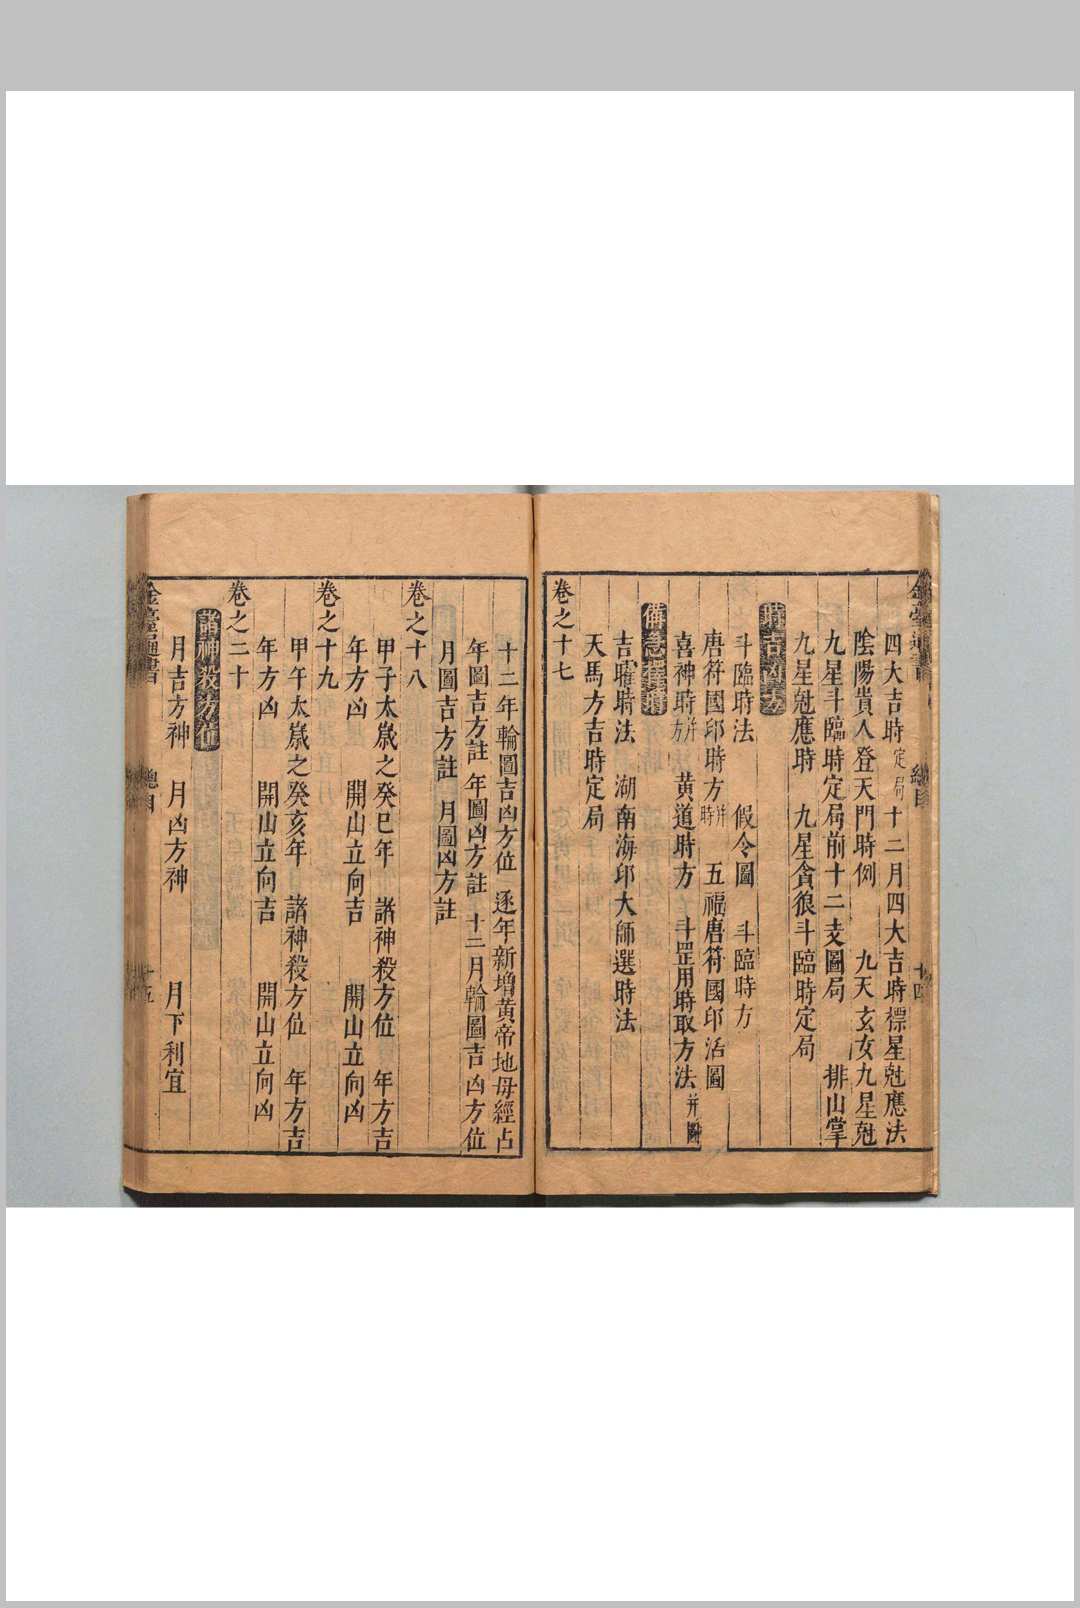 四大吉時定局 十二月四大吉時標星尅應法
陰陽貴人登天門時例 九天玄女九星尅
九星斗臨時定局前十二支圖局 排山掌
九星尅應時 九星貪狼斗臨時定局
時吉凶方
斗臨時法 假令圖 斗臨時方
唐符國印時方并時 五福唐符國印活圖
喜神時并方 黄道時方 斗罡用時取方法并圖
備急擇時
吉曜時法 湖南海印大師選時法
天馬方吉時定局
卷之十七
十二年輪圖吉凶方位 逐年新增黄帝地母經占
年圖吉方註 年圖凶方註 十二月輪圖吉凶方位
月圖吉方註 月圖凶方註
卷之十八
甲子太歲之癸巳年 諸神殺方位 年方吉
年方凶 開山立向吉 開山立向凶
卷之十九
甲午太歲之癸亥年 諸神殺方位 年方吉
年方凶 開山立向吉 開山立向凶
卷之二十
諸神殺方位
月吉方神 月凶方神 月下利宜
總目
十五